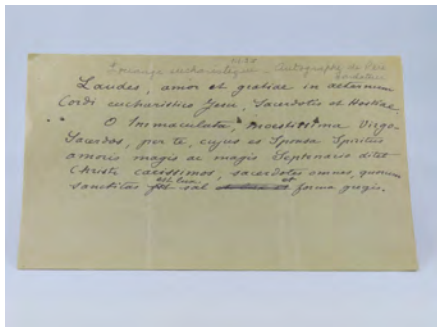 Louange eucharistique - Autographe du Père
fondateur
Laudes, amor et gratiae in aeternum
Cordi eucharistico Jesu, Sacerdotis et Hostiae.
O Immaculata, moestissima Virgo-
Sacerdos, per te, cujus es Sponsa Spiritus
amoris magis ac magis Septenario ditet
Christi carissimos, sacerdotes omnes, quorum
est lux et
sanctitas sal forma gregis.